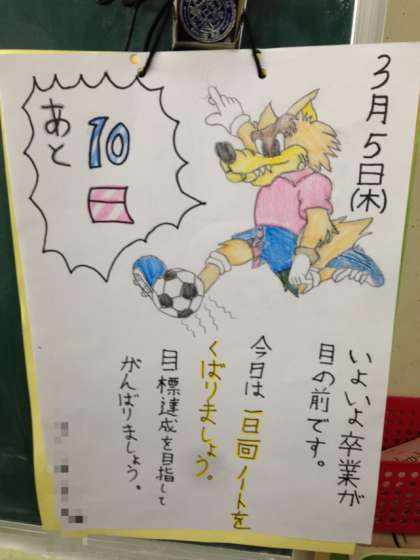 3月5日(木)
あと
10
日
いよいよ卒業が
目の前です。
今日は一日一回ノートを
くばりましょう。
目標達成を目指して
がんばりましょう。